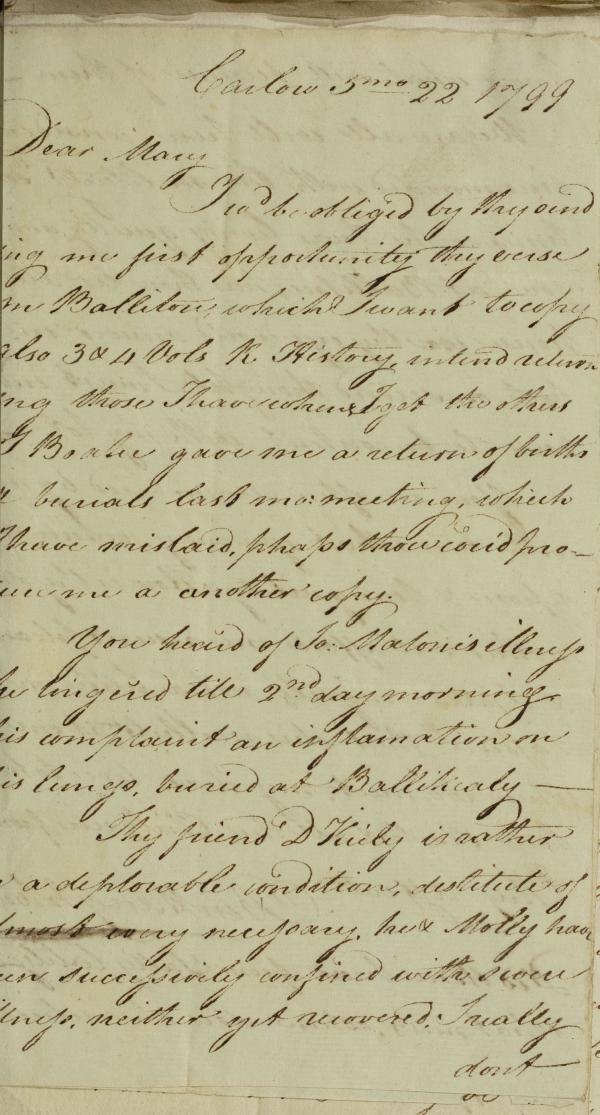 Carlow 5mo 22 1799
Dear Mary
I wd be obliged by thy send
ing me first opportunity thy verse
on Ballitore, which I want to copy
also 3 & 4 Vols R. History, intend return
ing those I have when I get the others
T Boake gave me a return of births
& burials last mo: meeting, which
I have mislaid, phaps thou cou'd pro-
cure me a another copy.
You heard of Jo: Malone's illness
he lingered till 2nd day morning
his complaint an inflamation on
his lungs, buried at Ballikealy —
Thy friend D Kiely is rather
in a deplorable condition, destitute of
almost every necessary, he & Molly have
been successively confined with severe
illness, neither yet recovered; I really
dont